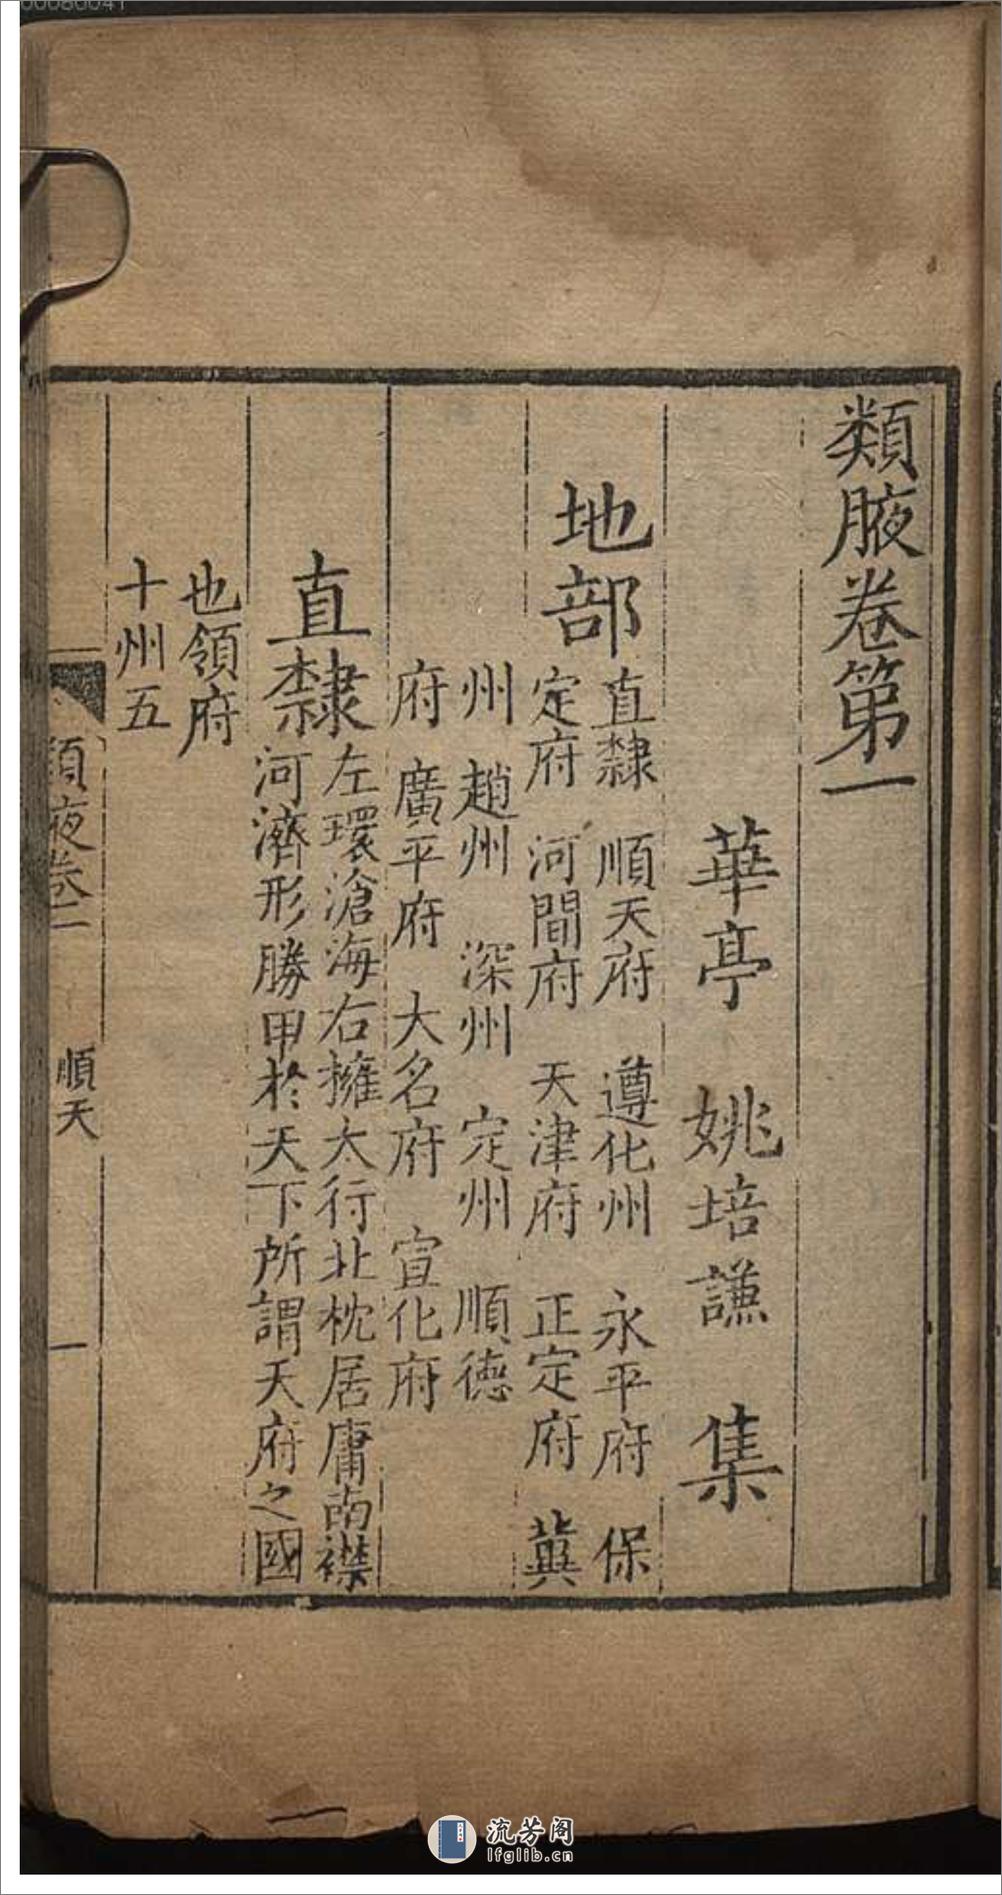 類腋卷第一
華亭 姚培謙 集
地部
直隸 順天府 遵化州 永平府 保
定府 河間府 天津府 正定府 冀
州 趙州 深州 定州 順德
府 廣平府 大名府 宣化府
直隸
左環滄海右擁太行北枕居庸南襟
河濟形勝甲於天下所謂天府之國
也領府
十州五
類腋卷一
順天
一
流芳阁
lfglib.cn